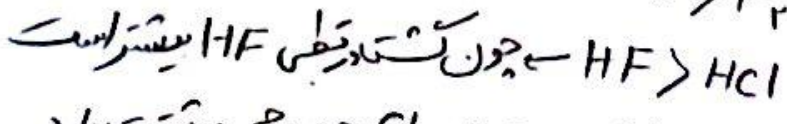 HF > HCl ← چون گشتاور قطبی HF بیشتر است